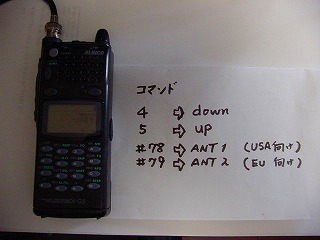 ALINCO
コマンド
4 ⇨ down
5 ⇨ up
#78 ⇨ ANT 1 (USA向け)
#79 ⇨ ANT 2 (EU 向け)